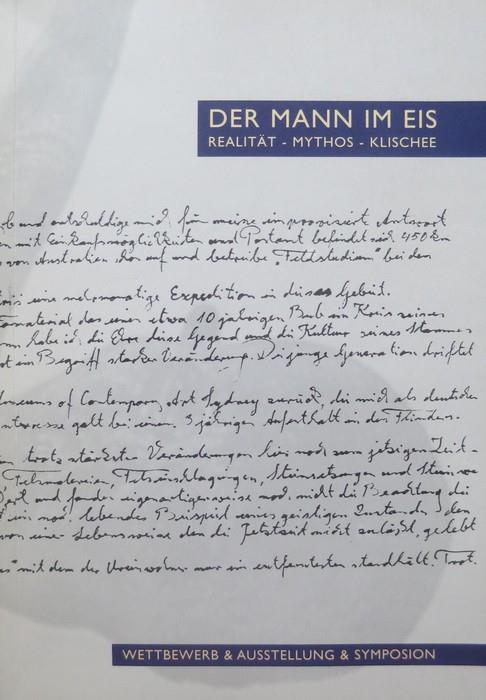 DER MANN IM EIS
REALITÄT - MYTHOS - KLISCHEE
und entschuldige mich für meine improvisierte Antwort
mit Einkaufsmöglichkeiten und Postamt befindet sich 450 km
von Australien hier auf und betreibe "Feldstudium" bei den
eine mehrmonatige Expedition in dieses Gebiet.
das einen etwa 10 jährigen Bub im Kreis seines
habe ich die Ehre diese Gegend und die Kultur seines Stammes
ist im Begriff starker Veränderung. Die junge Generation driftet
Museums of Contemporary Art Sydney zurück, die mich als deutschen
Interesse galt bei einem 3 jährigen Aufenthalt in den Flinders.
trotz stärkster Veränderungen hier noch zum jetzigen Zeit-
Felsmalereien, Felseinschlagungen, Steinsetzungen und
Dort und fanden eigenartigerweise noch nicht die Beachtung die
ein noch lebendes Beispiel eines geistigen Zustandes den
von einer Lebensweise den die Jetztzeit nicht zulässt, gelebt
mit dem der Ureinwohner nur im entferntesten standhält. Trot.
WETTBEWERB & AUSSTELLUNG & SYMPOSION